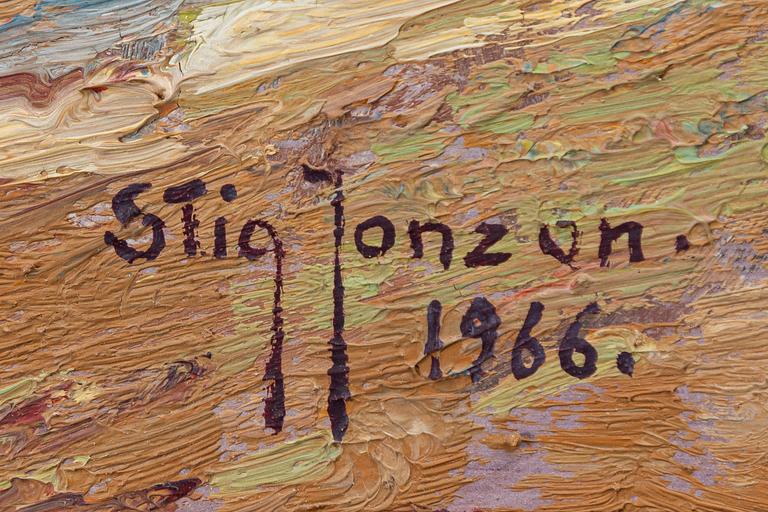 Stig Jonzon.
1966.